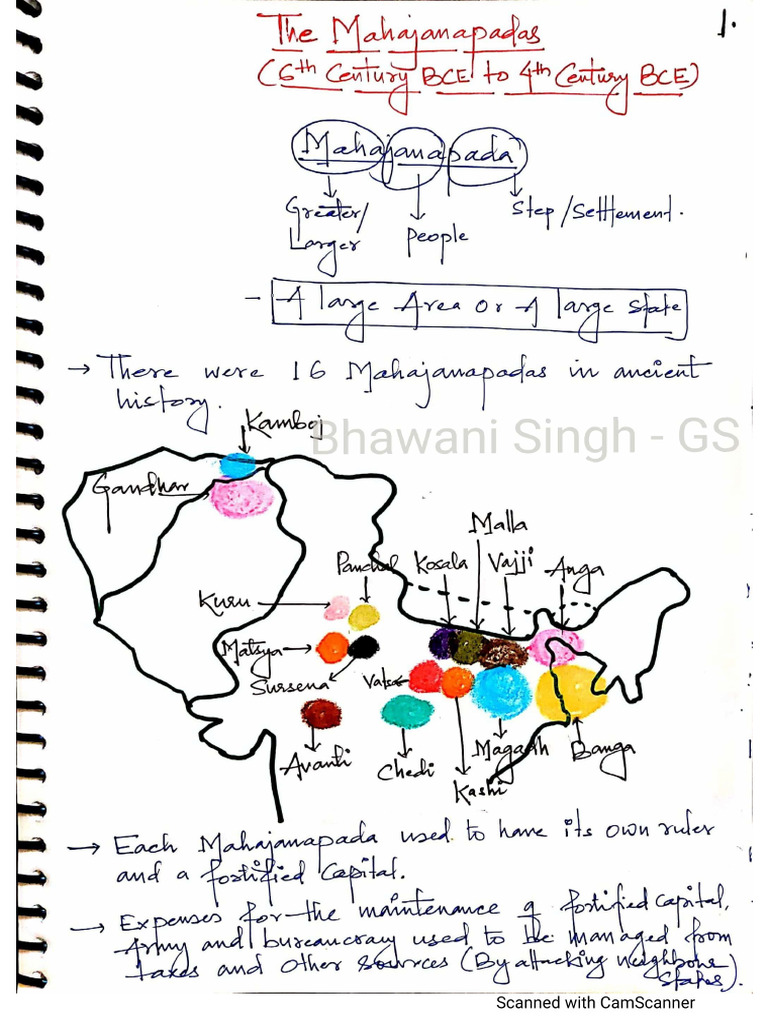 1.
The Mahajanapadas
(6th Century BCE to 4th Century BCE)
Mahajanapada
Greater/
Larger
People
Step/Settlement.
- A large Area or A large state
→ There were 16 Mahajanapadas in ancient
history.
Bhawani Singh - GS
Kamboj
Gandhar
Malla
Panchal Kosala Vajji Anga
Kuru
Matsya
Sursena
Vatsa
Avanti
Chedi
Kashi
Magadh
Banga
→ Each Mahajanapada used to have its own ruler
and a fortified Capital.
→ Expenses for the maintenance of fortified capital,
Army and bureaucracy used to be managed from
taxes and other sources (By attacking neighbour
states).
Scanned with CamScanner